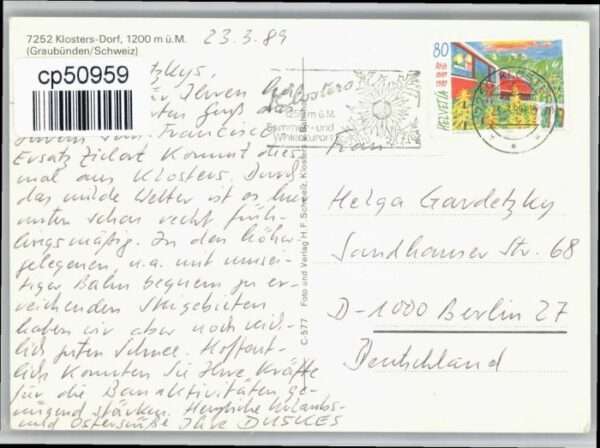 7252 Klosters-Dorf, 1200 m ü.M.
(Graubünden/Schweiz)
23.3.89
cp50959
Ihren
Gruß das
Francisco
Ersatz Zielort kommt dies
mal aus Klosters. Durch
das milde Wetter ist es hier
unten schon recht früh-
lingsmäßig. In den höher
gelegenen, u.a. mit
Bahn bequem zu er-
reichenden Skigebieten
haben wir aber noch reich-
lich guten Schnee. Hoffent-
lich konnten Sie Ihre Kräfte
für die Bauaktivitäten ge-
nügend stärken. Herzliche Urlaubs-
und Ostergrüße Ihre DUSKES
C-577 Foto und Verlag H F Schweiz, Klosters
Klosters
m ü.M.
Sommer- und
Winterkurort
80
HELVETIA
Frau
Helga Gardetzky
Sandhauser Str. 68
D-1000 Berlin 27
Deutschland